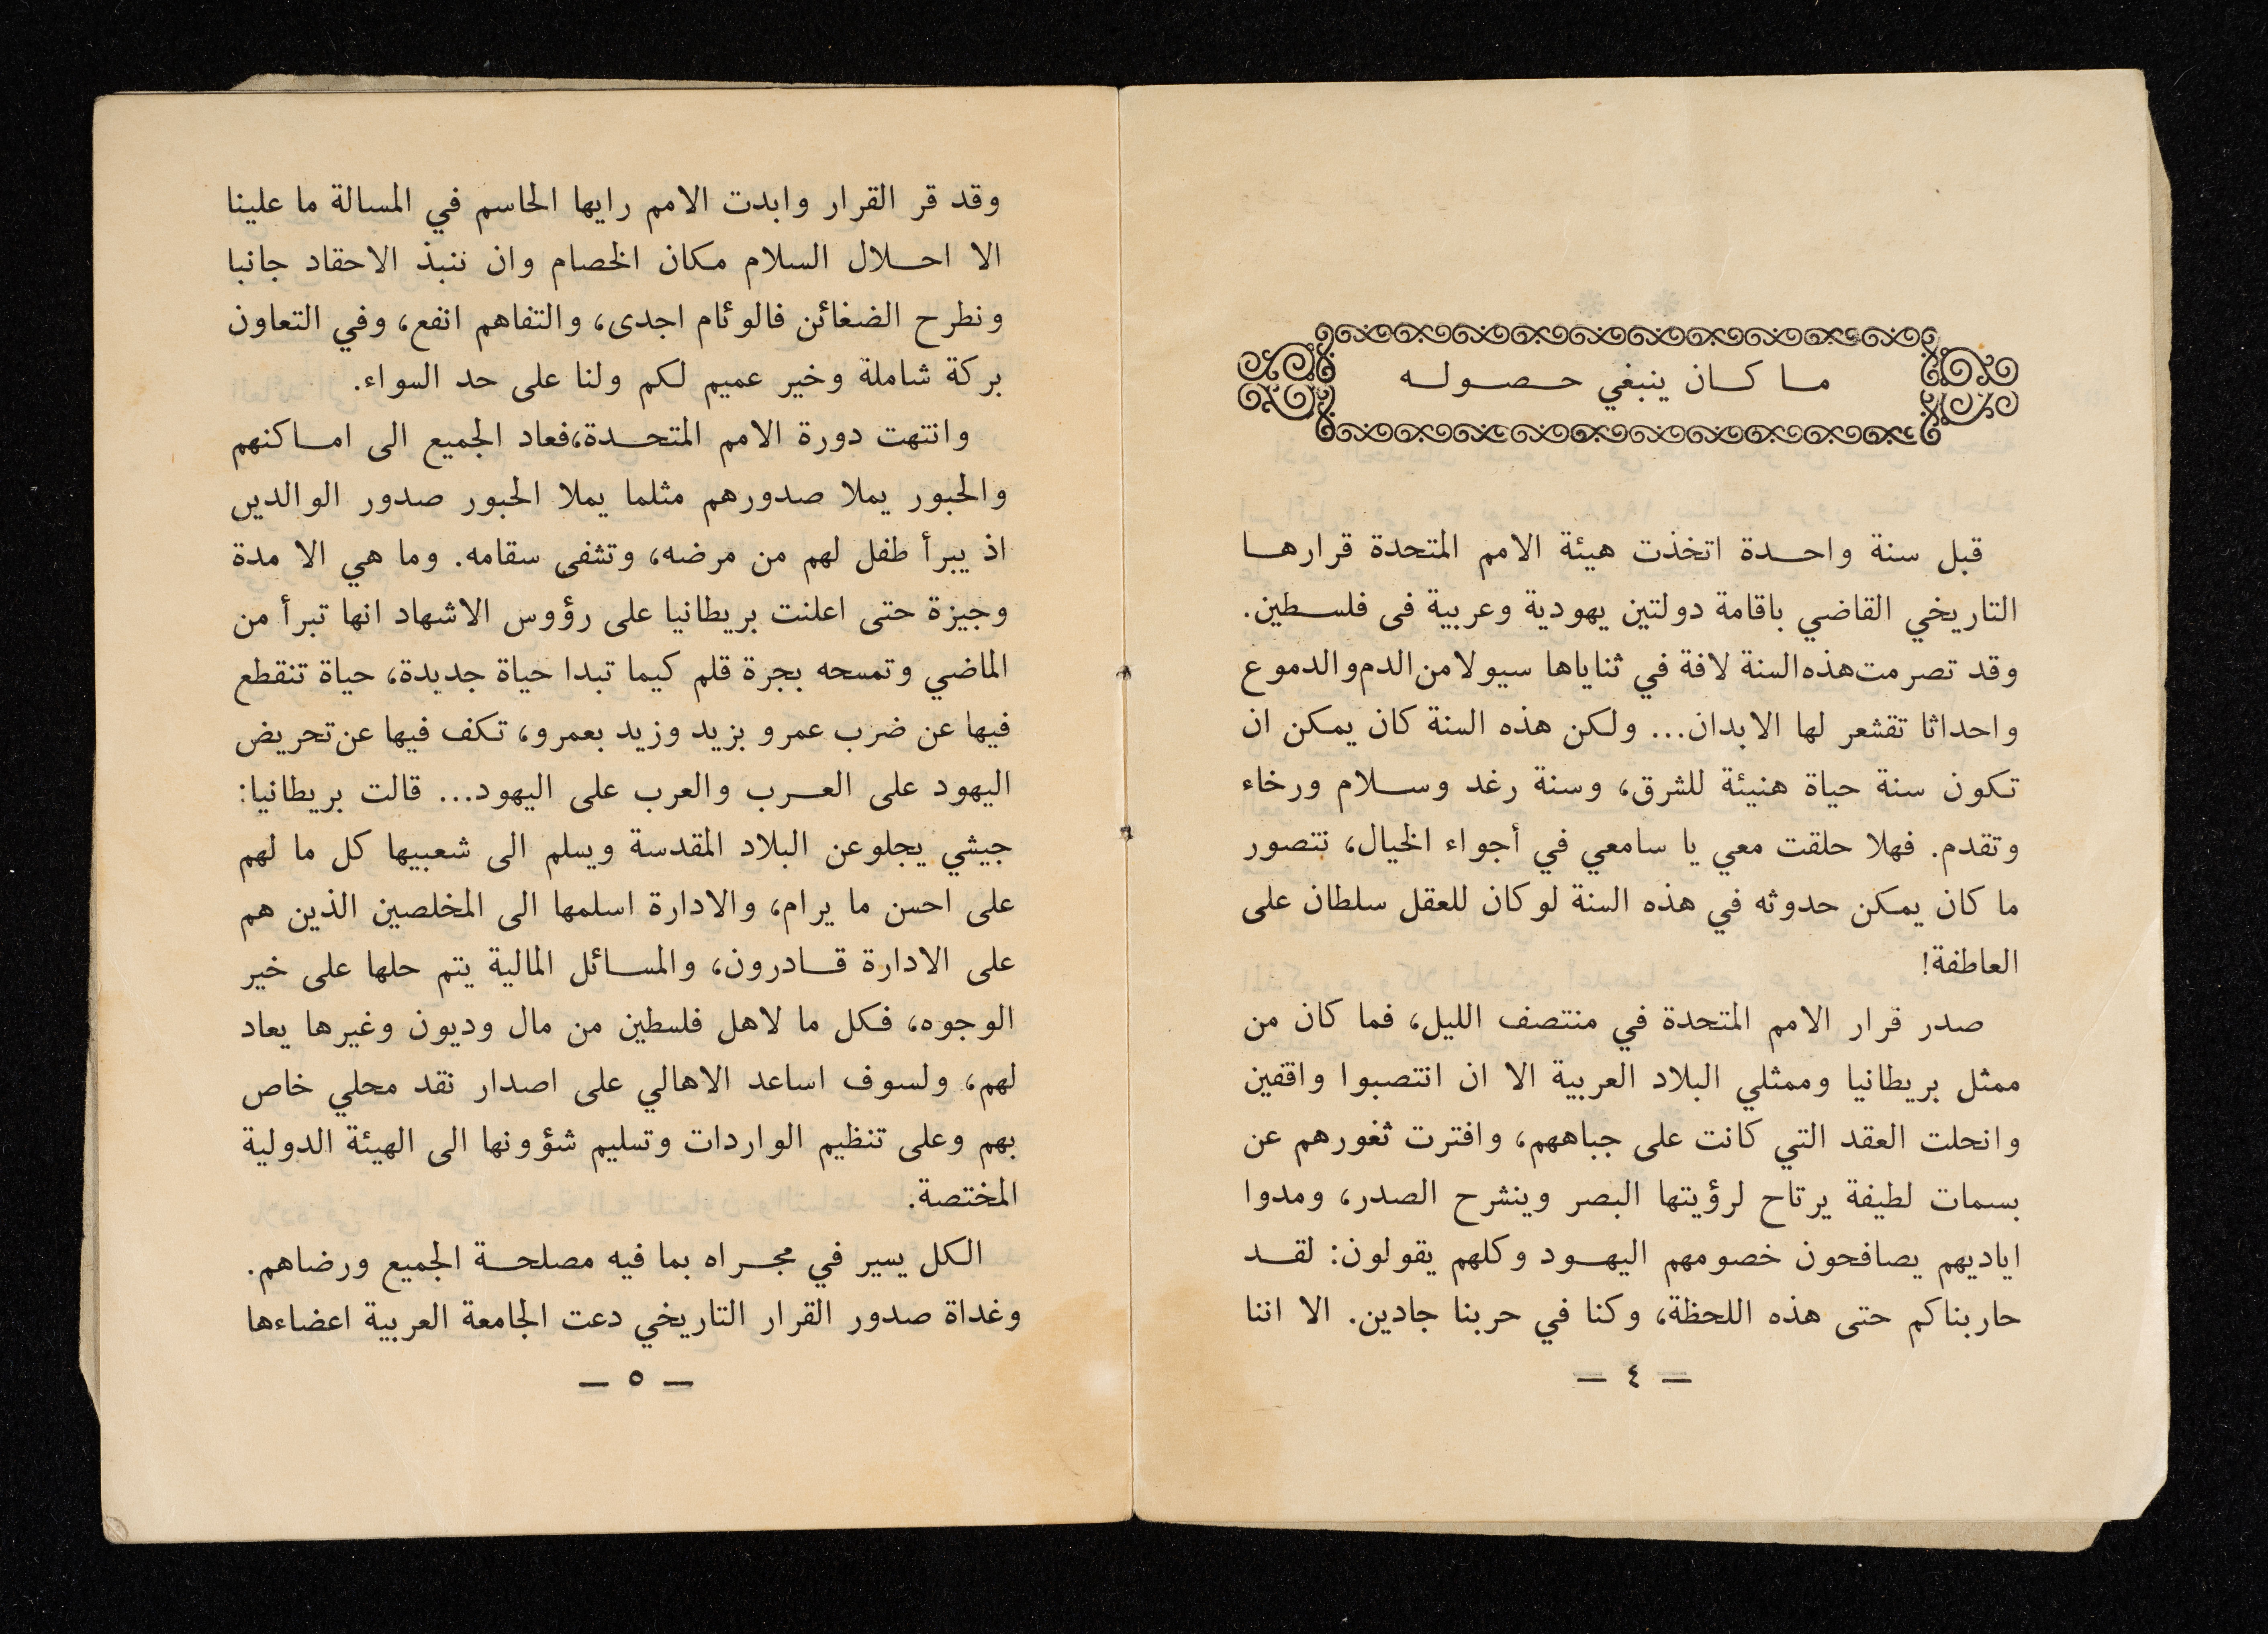 ما كان ينبغي حصوله
قبل سنة واحدة اتخذت هيئة الامم المتحدة قرارها
التاريخي القاضي باقامة دولتين يهودية وعربية فى فلسطين.
وقد تصرمت هذه السنة لافة في ثناياها سيولا من الدم والدموع
واحداثا تقشعر لها الابدان... ولكن هذه السنة كان يمكن ان
تكون سنة حياة هنيئة للشرق، وسنة رغد وسلام ورخاء
وتقدم. فهلا حلقت معي يا سامعي في أجواء الخيال، نتصور
ما كان يمكن حدوثه في هذه السنة لو كان للعقل سلطان على
العاطفة!
صدر قرار الامم المتحدة في منتصف الليل، فما كان من
ممثل بريطانيا وممثلي البلاد العربية الا ان انتصبوا واقفين
وانحلت العقد التي كانت على جباههم، وافترت ثغورهم عن
بسمات لطيفة يرتاح لرؤيتها البصر وينشرح الصدر، ومدوا
اياديهم يصافحون خصومهم اليهود وكلهم يقولون: لقد
حاربناكم حتى هذه اللحظة، وكنا في حربنا جادين. الا اننا
— ٤ —
وقد قر القرار وابدت الامم رايها الحاسم في المسالة ما علينا
الا احلال السلام مكان الخصام وان ننبذ الاحقاد جانبا
ونطرح الضغائن فالوئام اجدى، والتفاهم انفع، وفي التعاون
بركة شاملة وخير عميم لكم ولنا على حد السواء.
وانتهت دورة الامم المتحدة،فعاد الجميع الى اماكنهم
والحبور يملا صدورهم مثلما يملا الحبور صدور الوالدين
اذ يبرأ طفل لهم من مرضه، وتشفى سقامه. وما هي الا مدة
وجيزة حتى اعلنت بريطانيا على رؤوس الاشهاد انها تبرأ من
الماضي وتمسحه بجرة قلم كيما تبدا حياة جديدة، حياة تنقطع
فيها عن ضرب عمرو بزيد وزيد بعمرو، تكف فيها عن تحريض
اليهود على العرب والعرب على اليهود... قالت بريطانيا:
جيشي يجلو عن البلاد المقدسة ويسلم الى شعبيها كل ما لهم
على احسن ما يرام، والادارة اسلمها الى المخلصين الذين هم
على الادارة قادرون، والمسائل المالية يتم حلها على خير
الوجوه، فكل ما لاهل فلسطين من مال وديون وغيرها يعاد
لهم، ولسوف اساعد الاهالي على اصدار نقد محلي خاص
بهم وعلى تنظيم الواردات وتسليم شؤونها الى الهيئة الدولية
المختصة.
الكل يسير في مجراه بما فيه مصلحة الجميع ورضاهم.
وغداة صدور القرار التاريخي دعت الجامعة العربية اعضاءها
— ٥ —